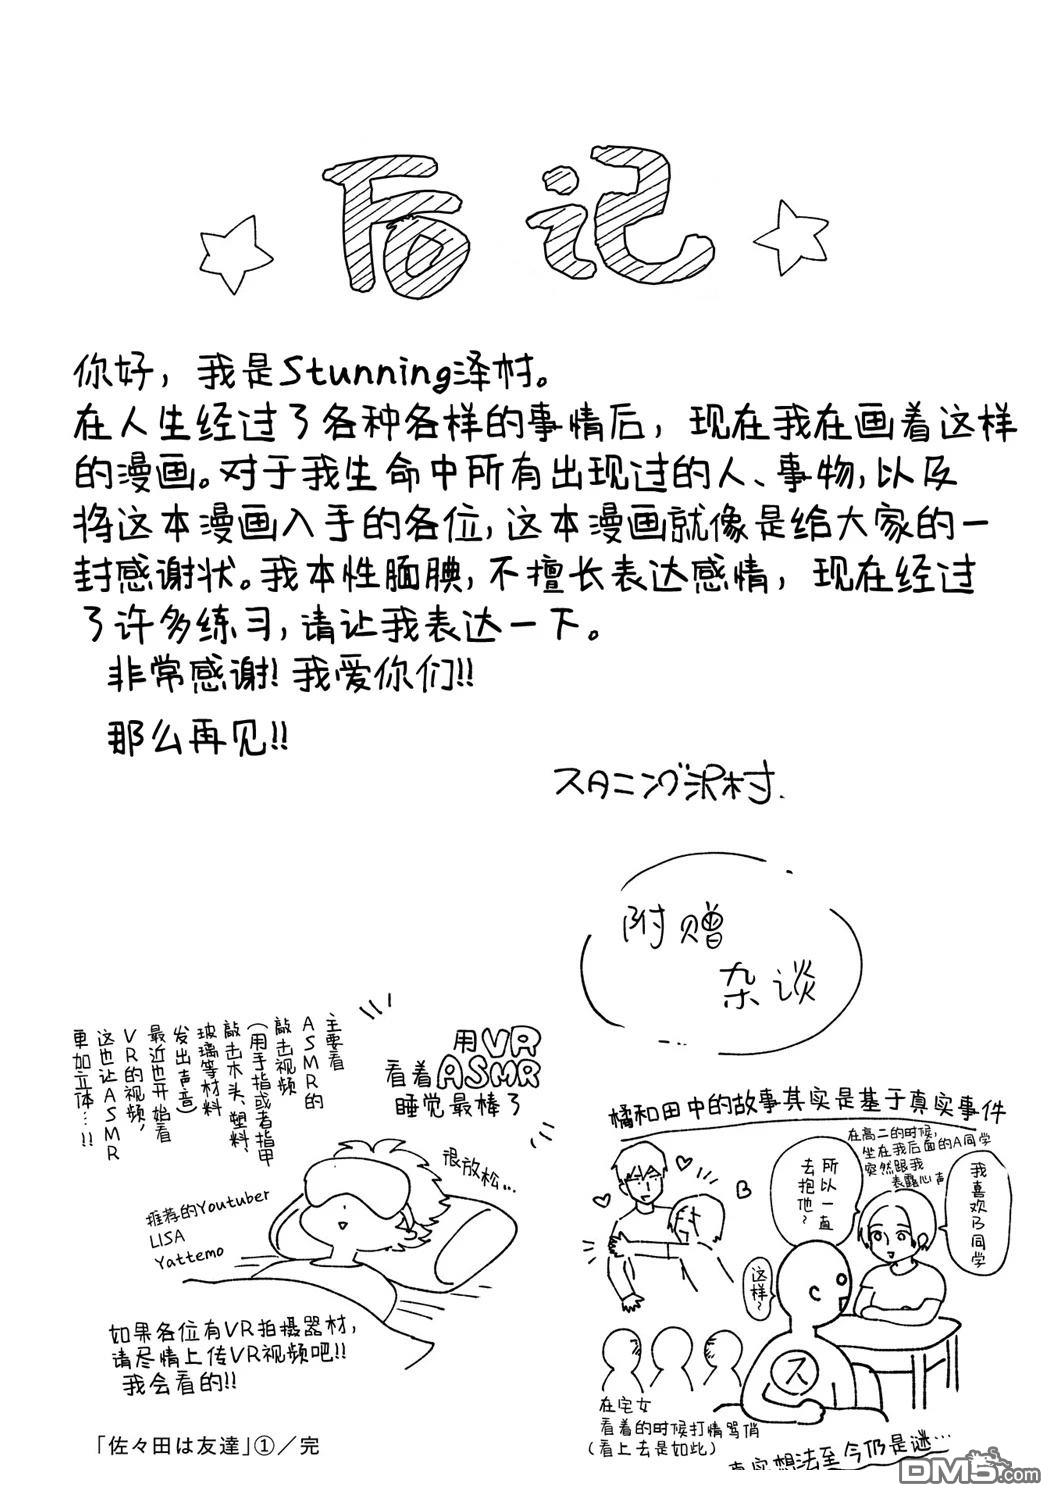 后记
你好，我是Stunning泽村。
在人生经过了各种各样的事情后，现在我在画着这样
的漫画。对于我生命中所有出现过的人、事物，以及
将这本漫画入手的各位，这本漫画就像是给大家的一
封感谢状。我本性腼腆，不擅长表达感情，现在经过
了许多练习，请让我表达一下。
非常感谢！我爱你们!!
那么再见!!
スタニング沢村.
附赠
杂谈
用VR
看着ASMR
睡觉最棒了
主要看
ASMR的
敲击视频
(用手指或者指甲
敲击木头、塑料、
玻璃等材料
发出声音)
最近也开始看
VR的视频，
这也让ASMR
更加立体…!!
很放松…
推荐的Youtuber
LISA
Yattemo
如果各位有VR拍摄器材，
请尽情上传VR视频吧!!
我会看的!!
橘和田中的故事其实是基于真实事件
在高二的时候，
坐在我后面的A同学
突然跟我
表露心声
我
喜欢乃
同学
所以一直
去抱
他~
B
这样~
ス
在宅女
看着的时候打情骂俏
(看上去是如此)
真实想法至今仍是谜…
「佐々田は友達」①／完
DM5.com